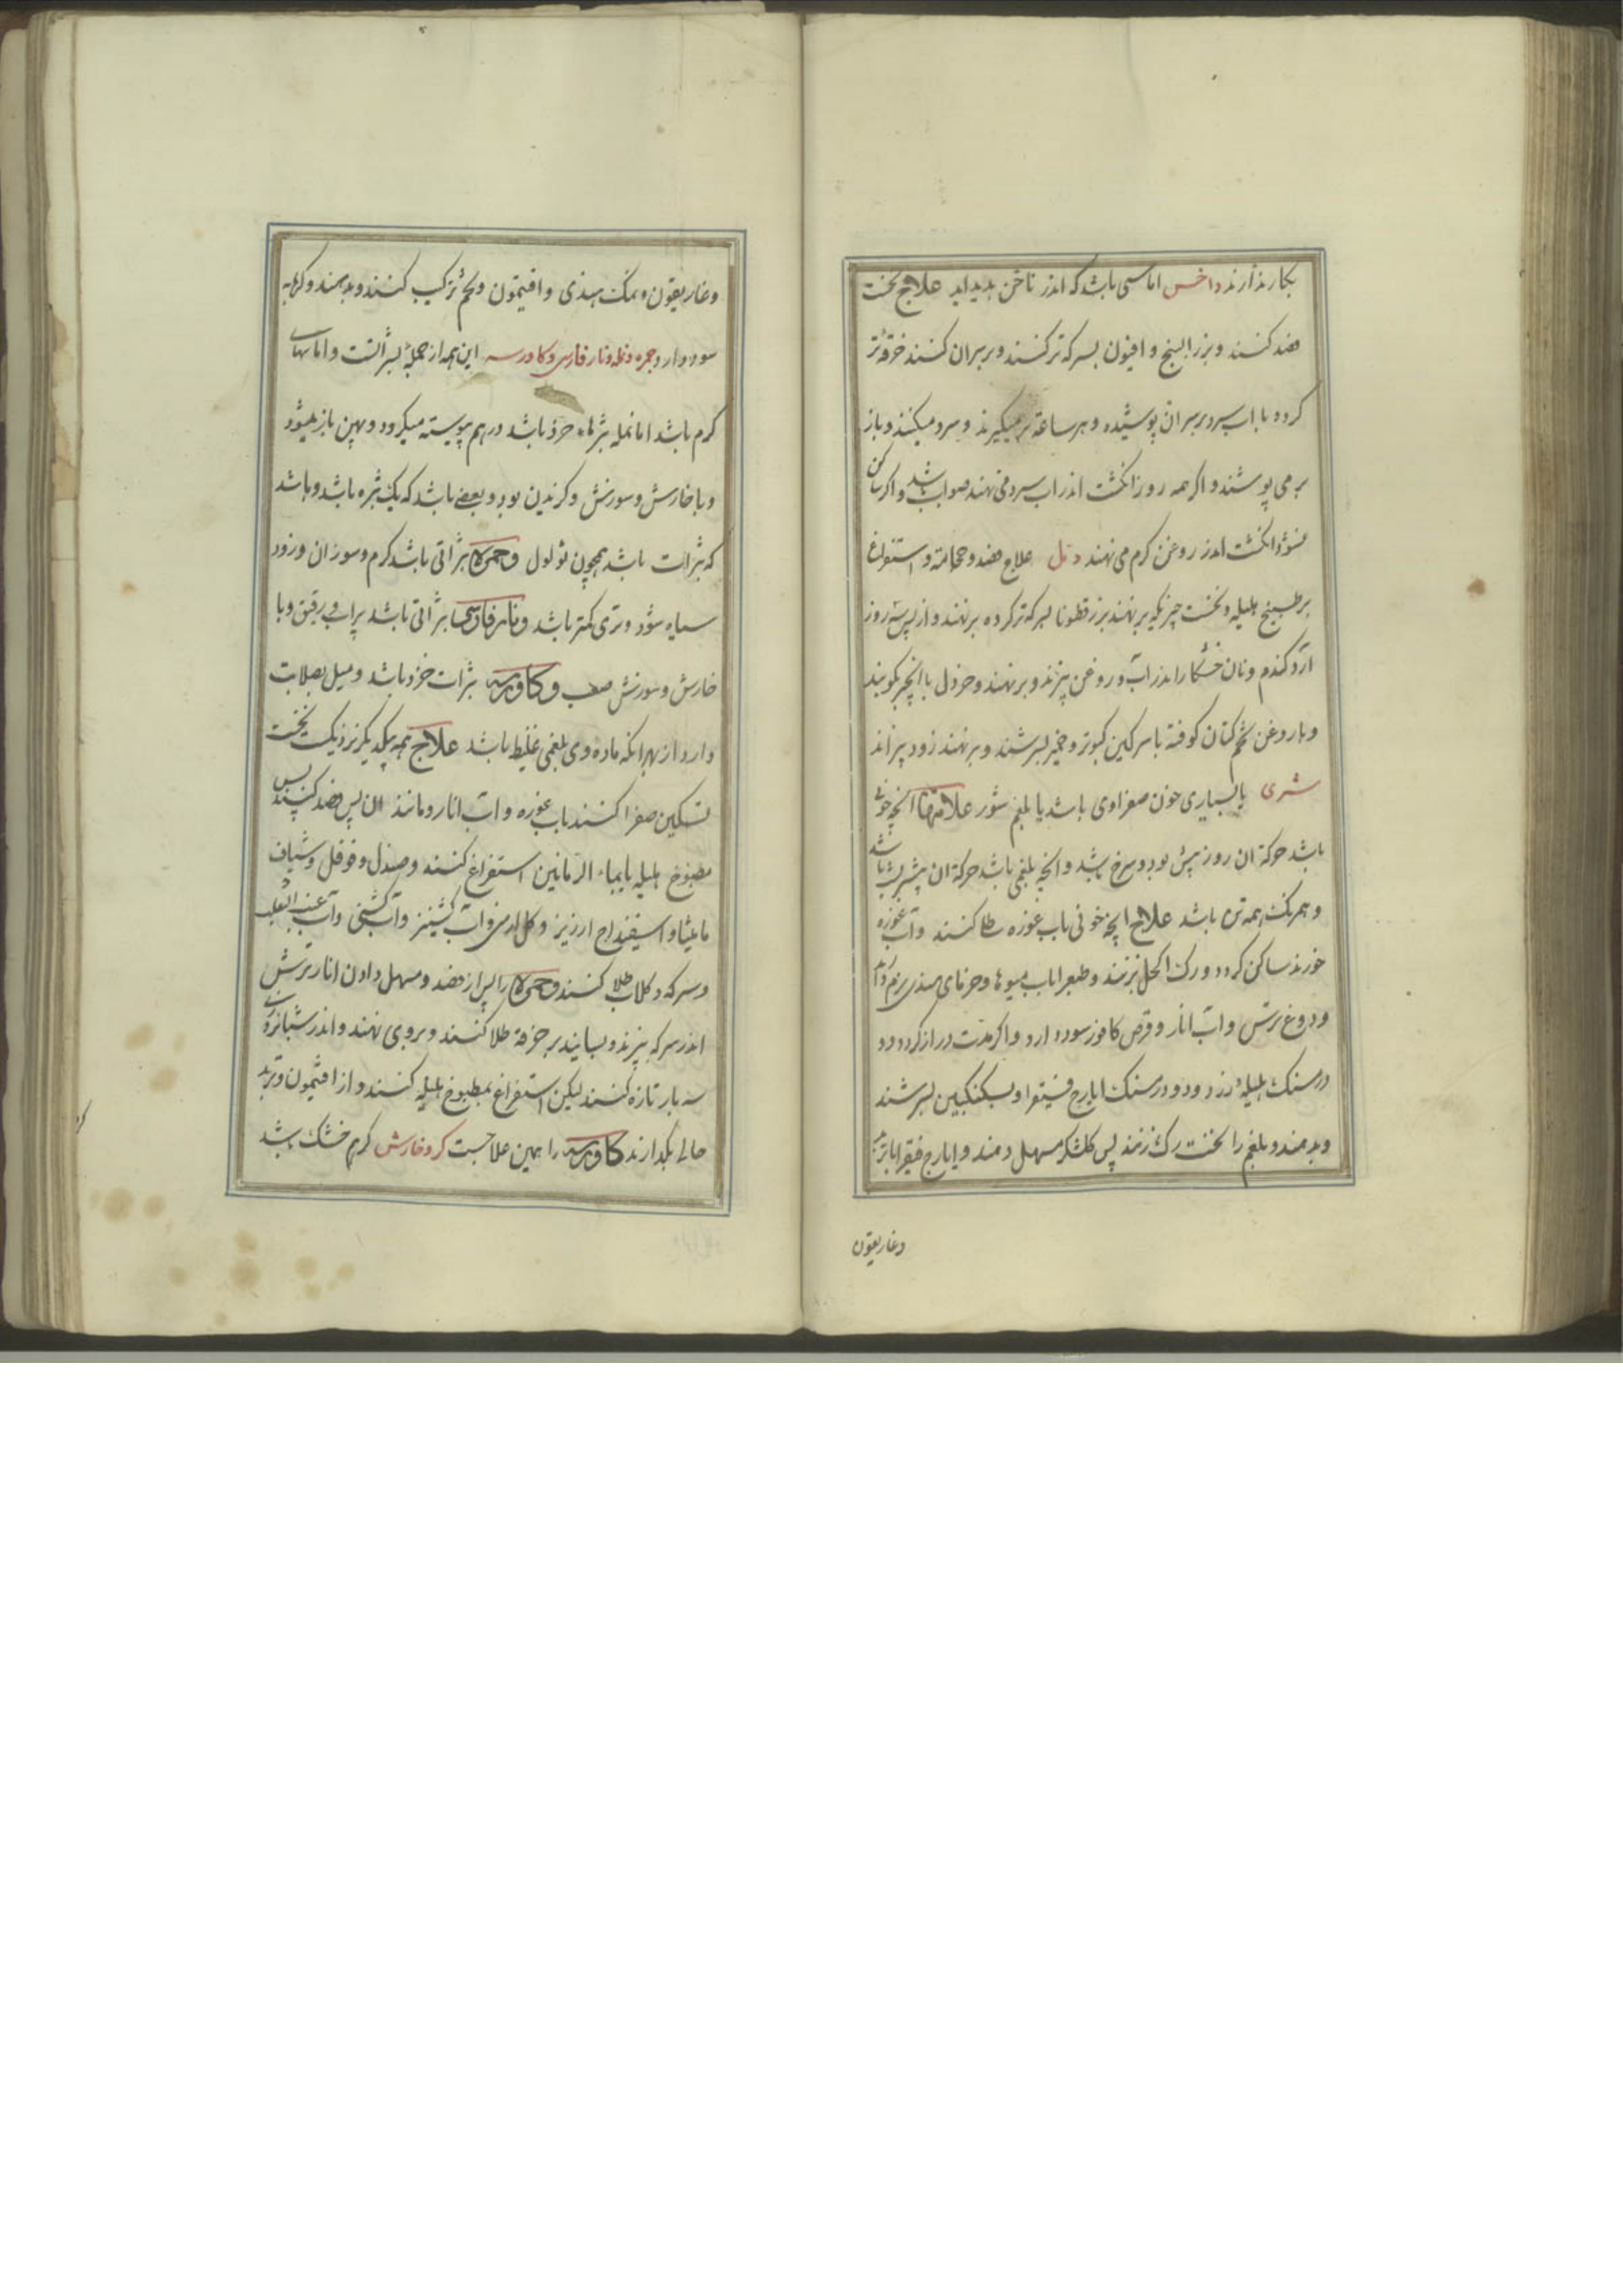 بکار ندارند داخس اماسی باشد که اندر ناخن بدید اید علاج نخست
فصد کنند و بزر البنج و افیون بسرکه تر کنند و بر بران کنند خرقه تر
کرده باب سرد بر بران پوشیده و هر ساعة بر میکیرند و سرد میکنند و باز
بر می پوشند و اکر همه روز انکشت اندر اب سرد می نهند صواب باشد و اکر ساکن
نشود انکشت اندر روغن کرم می نهند دمل علاج فصد و حجامة و استفراغ
بر طبیخ هلیله و نخست چیزیکه بر نهند بزر قطونا بسرکه تر کرده بر نهند و از پس سه روز
آرد کندم و نان خشکار اندر آب و روغن بپزند و بر نهند و خردل با انجیر بکوبند
و باروغن تخم کتان کوفته با سرکین کبوتر و خمیر بسرشند و بر نهند زود بپزاند
شری یا بسیاری خون صفراوی باشد یا بلغم شور علامتها انچه خونی
باشد حرکة ان روز بیش بود و سرخ باشد و انچه بلغمی باشد حرکة ان بیشتر بشب باشد
و همرنک همه تن باشد علاج انچه خونی باب غوره طلا کنند و آب غوره
خورند ساکن کردد و رک اکحل بزنند و طبع را باب میوها و خرمای هندی نرم دارند
و دوغ ترش و آب انار و قرص کافور سود دارد و اکر مدت دراز کردد دو
درمسنک هلیله زرد و دو درمسنک ایارج فیقرا و بسکنکبین بسرشند
و بدهند و بلغم را نخست رک زنند پس کلشکر مسهل دهند و ایارج فیقرا با تربد
وغاریقون
وغاریقون و نمک هندی و افیتمون و تخم ترکیب کنند و بدهند و کرمابه
سود دارد جمره و نمله و نار فارسی و کاورسه این همه از جمله بثراتست و اماسهای
کرم باشد اما نمله بثرها خرد باشد درهم پیوسته میکردد و پهن باز میشود
و با خارش و سوزش و کزیدن بود و بعضی باشد که یک بثره باشد و باشد
که بثرات باشد همچون ثولول و جمره بثراتی باشد کرم و سوزان و زود
سیاه شود و تری کمتر باشد و نار فارسی بثراتی باشد پر اب رقیق و با
خارش و سوزش صعب و کاورسه بثرات خرد باشد و میل بصلابت
دارد از بهر انکه ماده وی بلغمی غلیظ باشد علاج همه بیکدیکر نزدیکست نخست
تسکین صفرا کنند باب غوره و آب انار و مانند ان پس فصد کنند پس
مطبوخ هلیله یا بماء الرمانین استفراغ کنند و صندل و فوفل و شیاف
مامیثا و اسفیداج ارزیز و کل ارمنی و آب کشنیز و آب کشنی و آب عنب الثعلب
و سرکه و کلاب طلا کنند و جمره را پس از فصد و مسهل دادن انار ترش
اندر سرکه بپزند و بسایند بر خرقه طلا کنند و بر وی نهند و اندر شبانروزی
سه بار تازه کنند لیکن استفراغ بمطبوخ هلیله کنند و از افتیمون و تربد
خالی نکدارند کاورسه را همین علاجست کر و خارش کر هم خشک باشد